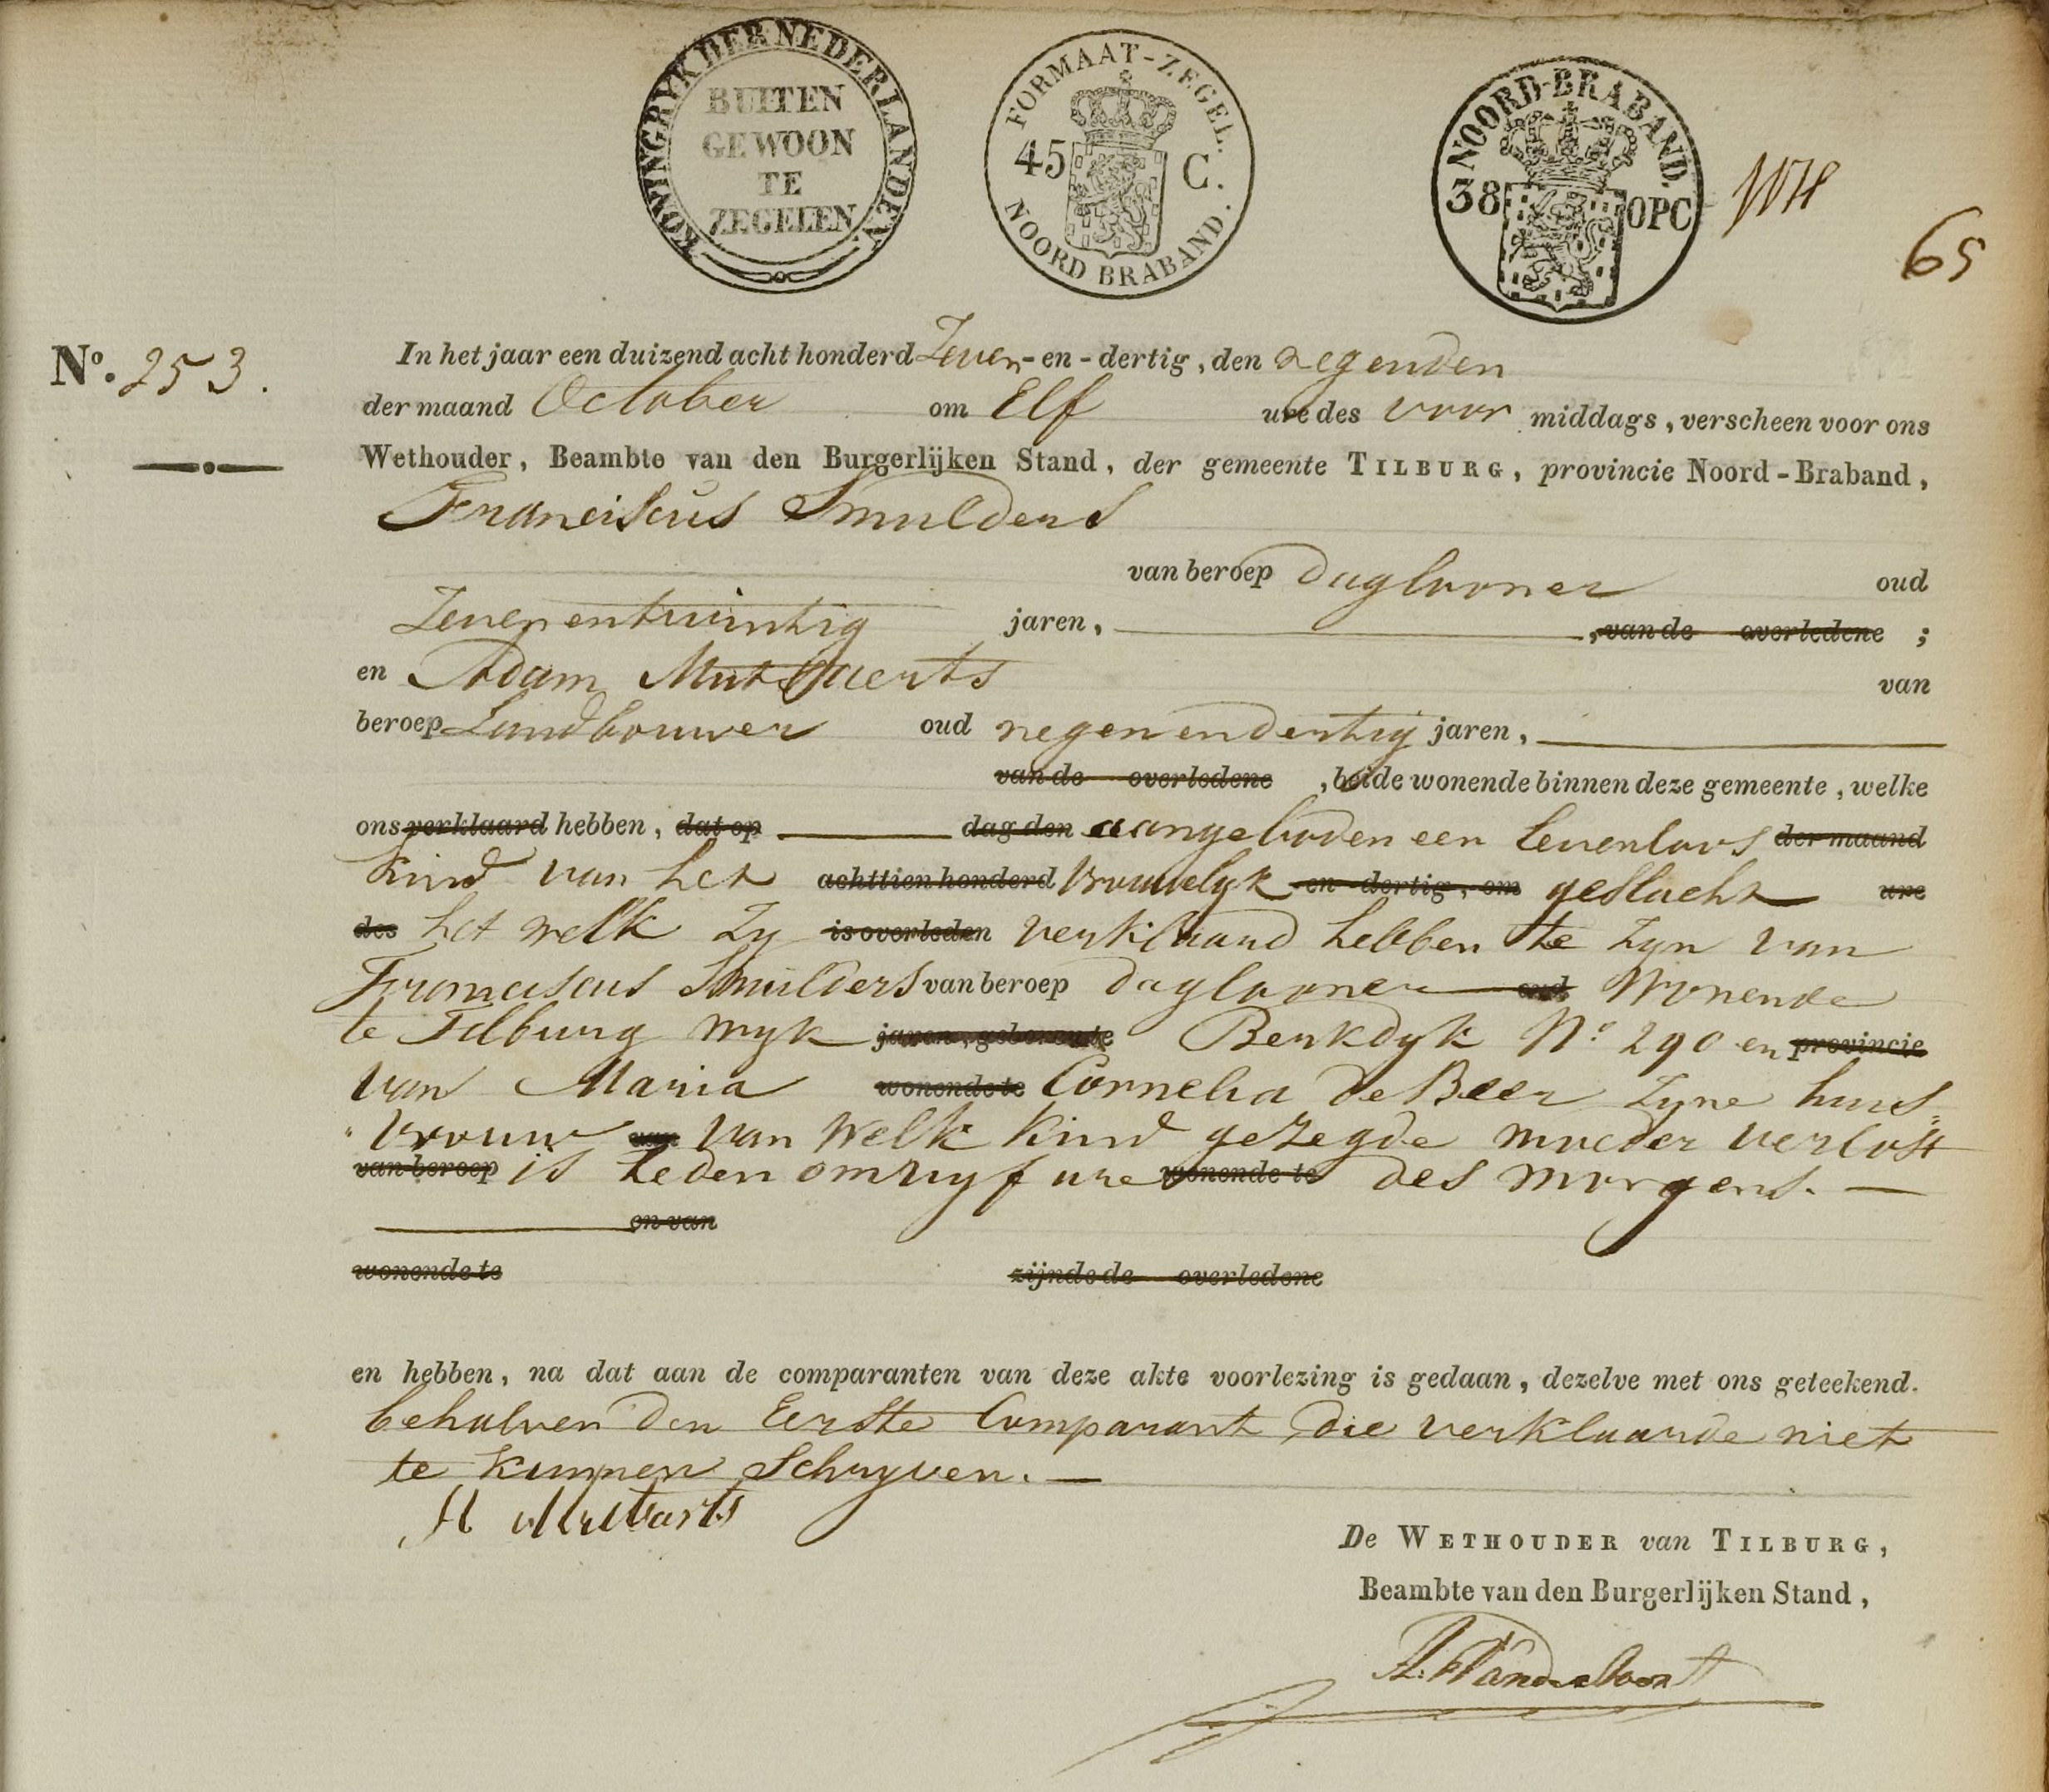 KONINGRYK DER NEDERLANDEN.
BUITEN
GEWOON
TE
ZEGELEN.
FORMAAT-ZEGEL.
45 C.
NOORD BRABAND.
NOORD-BRABAND.
38 OPC
65
No. 253.
In het jaar een duizend acht honderd Zeven-en-dertig, den negenden
der maand October om Elf ure des voor middags, verscheen voor ons
Wethouder, Beambte van den Burgerlijken Stand, der gemeente TILBURG, provincie Noord-Braband,
Franciscus Smulders
van beroep daglooner oud
Zevenentwintig jaren, , van de overledene ;
en Adam Mutsaerts van
beroep Landbouwer oud negenendertig jaren,
van de overledene , beide wonende binnen deze gemeente, welke
ons verklaard hebben, dat op dag den aangeboden een levenloos der maand
kind van het achttien honderd Vrouwelyk en dertig, om geslacht ure
des het welk Zy is overleden verklaard hebben te Zyn van
Franciscus Smulders van beroep daglooner oud Wonende
te Tilburg wyk jaren, geboren te Berkdyk No 290 en provincie
van Maria wonende te Cornelia de Beer Zyne huis=
vrouw van van Welk Kind gezegde moeder verlost
van beroep is heden om vyf ure wonende te des morgens. —
en van
wonende te zijnde de overledene
en hebben, na dat aan de comparanten van deze akte voorlezing is gedaan, dezelve met ons geteekend.
behalven den Eerste Comparant die verklaarde niet
te kunnen Schryven. —
A Mutsarts
De WETHOUDER van TILBURG,
Beambte van den Burgerlijken Stand,